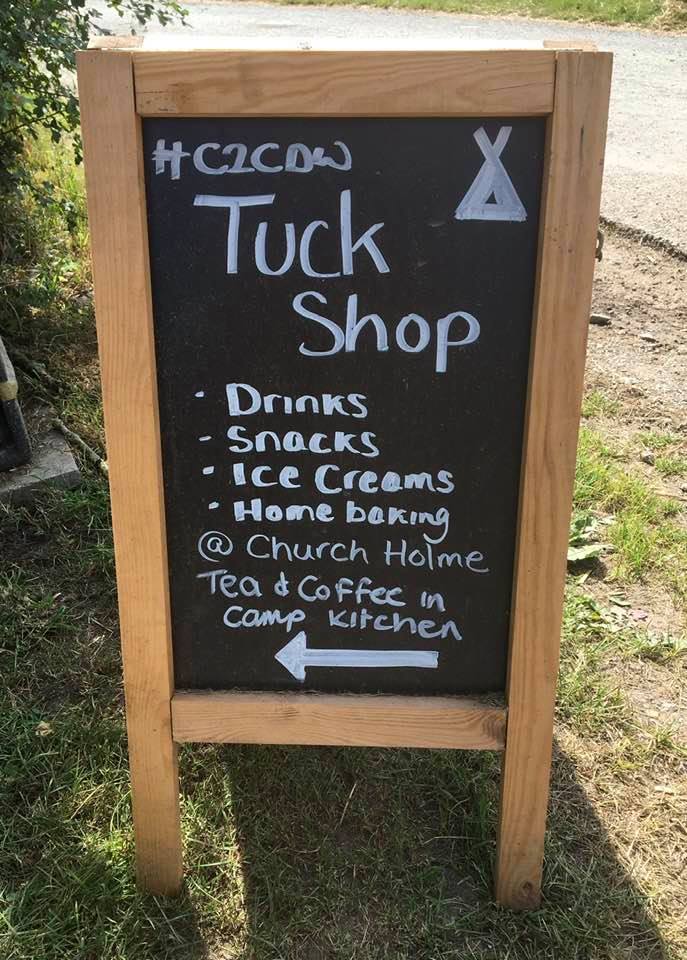 #C2CDW
Tuck
Shop
· Drinks
- Snacks
· Ice Creams
· Home baking
@ Church Holme
Tea & Coffee in
Camp Kitchen